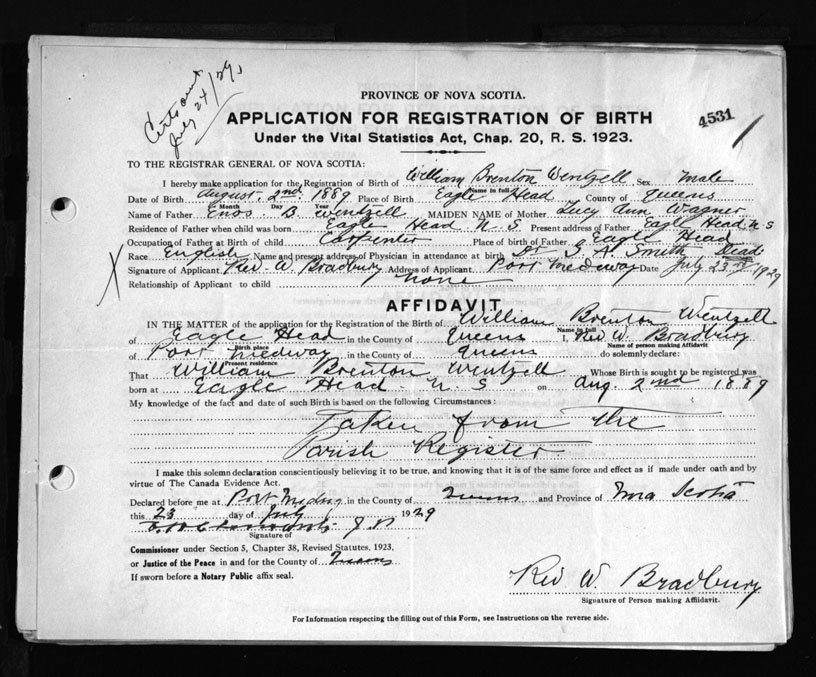 Certs out
July 24/29
PROVINCE OF NOVA SCOTIA.
4531
APPLICATION FOR REGISTRATION OF BIRTH
Under the Vital Statistics Act, Chap. 20, R. S. 1923.
TO THE REGISTRAR GENERAL OF NOVA SCOTIA:
I hereby make application for the Registration of Birth of William Brenton Wentzell Sex Male
Name in full
Date of Birth August 2nd 1889 Place of Birth Eagle Head County of Queens
Month Day Year
Name of Father Enos B Wentzell MAIDEN NAME of Mother Lucy Ann Wagner
Residence of Father when child was born Eagle Head N.S Present address of Father Eagle Head N S
Occupation of Father at Birth of child Carpenter Place of birth of Father Eagle Head
Race English Name and present address of Physician in attendance at birth Dr Smith Dead
Signature of Applicant Rev. W. Bradbury Address of Applicant Port Medway Date July 23rd 1929
Relationship of Applicant to child none
AFFIDAVIT
IN THE MATTER of the application for the Registration of Birth of William Brenton Wentzell
Name in full
of Eagle Head in the County of Queens I, Rev W. Bradbury
Birth place
Name of person making Affidavit
of Port Medway in the County of Queens do solemnly declare:
Present residence
That William Brenton Wentzell Whose Birth is sought to be registered was
born at Eagle Head N S on Aug. 2nd 1889
My knowledge of the fact and date of such Birth is based on the following Circumstances:
Taken from the
Parish Register
I make this solemn declaration conscientiously believing it to be true, and knowing that it is of the same force and effect as if made under oath and by
virtue of The Canada Evidence Act.
Declared before me at Port Medway in the County of Queens and Province of Nova Scotia
this 23 day of July 1929
J P
Signature of
Commissioner under Section 5, Chapter 38, Revised Statutes, 1923,
or Justice of the Peace in and for the County of Queens
If sworn before a Notary Public affix seal.
Rev W. Bradbury
Signature of Person making Affidavit.
For Information respecting the filling out of this Form, see Instructions on the reverse side.